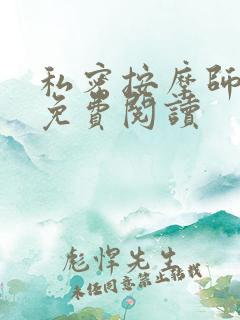 私密按摩師
免費閱讀
彪悍先生
未经同意禁止转载